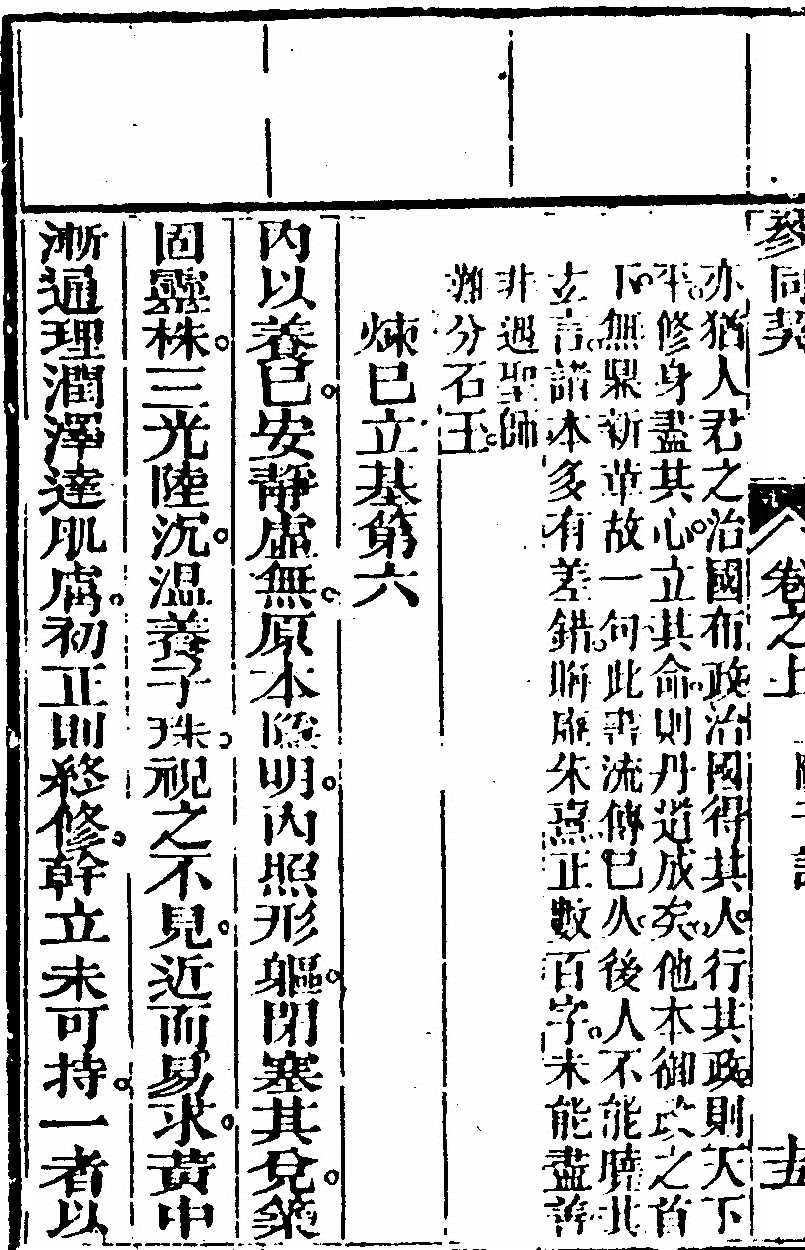 參同契 卷之上 十五
亦猶人君之治國布政治國得其人。行其政。則天下
平。修身盡其心。立其命。則丹道成矣。他本御政之首
下無鼎新革故一句。此書流傳已久。後人不能曉其
立言。諸本多有差錯。朱熹正數百字。未能盡善
非遇聖師
難分石玉。
煉已立基第六
內以養已。安靜虛無。原本隱明。內照形軀。閉塞其兌。築
固靈株。三光陸沉。温養子珠。視之不見。近而易求。黃中
漸通理潤澤達肌膚。初正則終修。幹立未可持。一者以